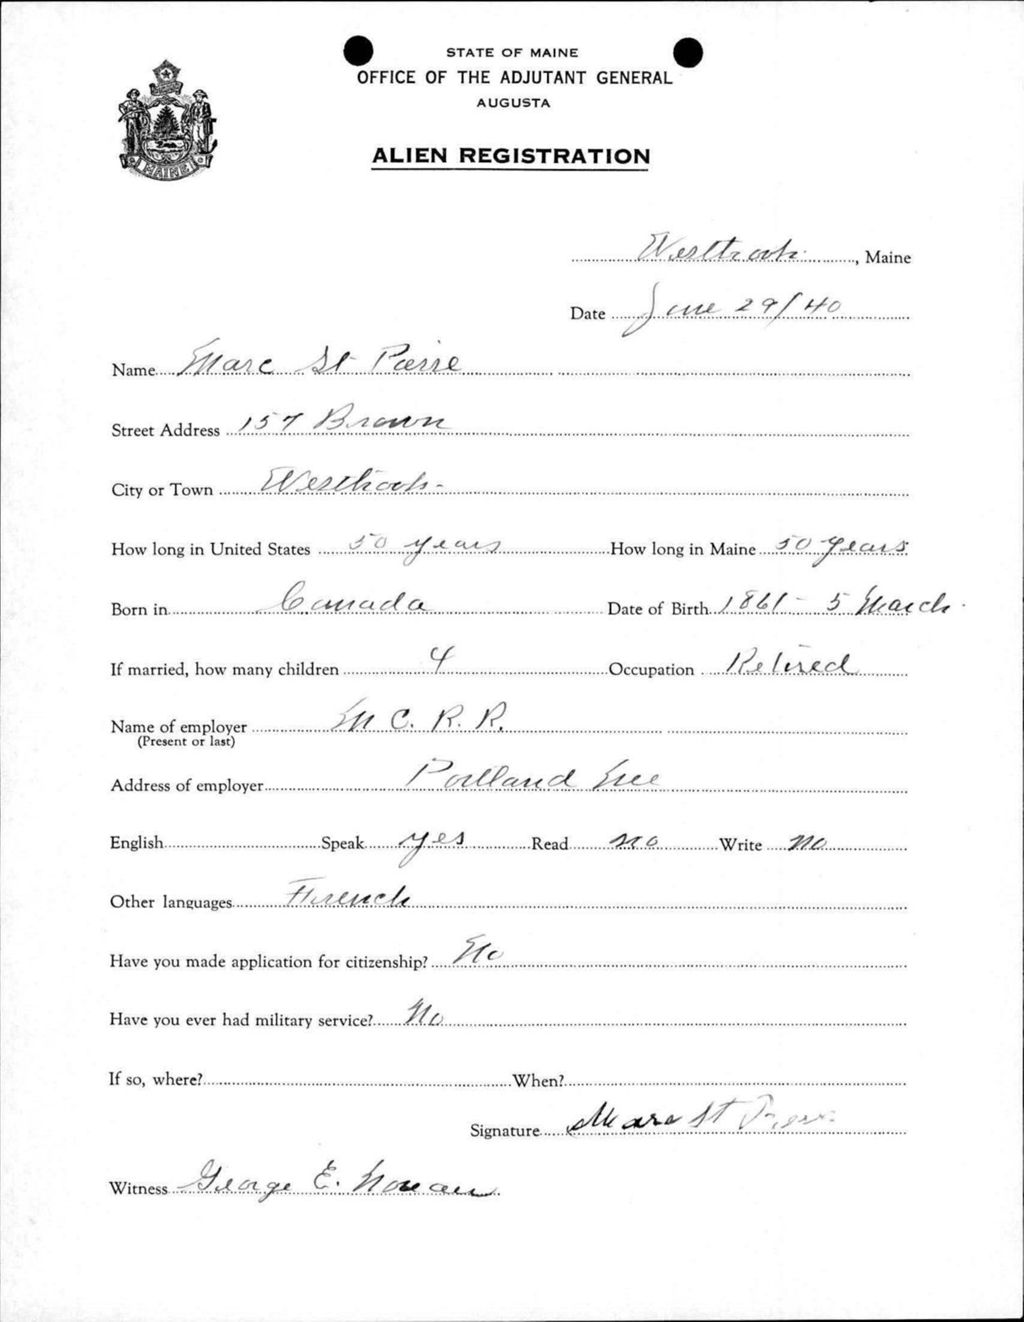 STATE OF MAINE
OFFICE OF THE ADJUTANT GENERAL
AUGUSTA
ALIEN REGISTRATION
MAINE
Westbrook, Maine
Date June 29/40
Name Marc St Pierre
Street Address 157 Brown
City or Town Westbrook
How long in United States 50 years How long in Maine 50 years
Born in Canada Date of Birth 1861 - 5 March
If married, how many children 4 Occupation Retired
Name of employer M C. R. R.
(Present or last)
Address of employer Portland Me
English Speak yes Read no Write no
Other languages French
Have you made application for citizenship? No
Have you ever had military service? No
If so, where? When?
Signature Marc St Pierre
Witness George E.